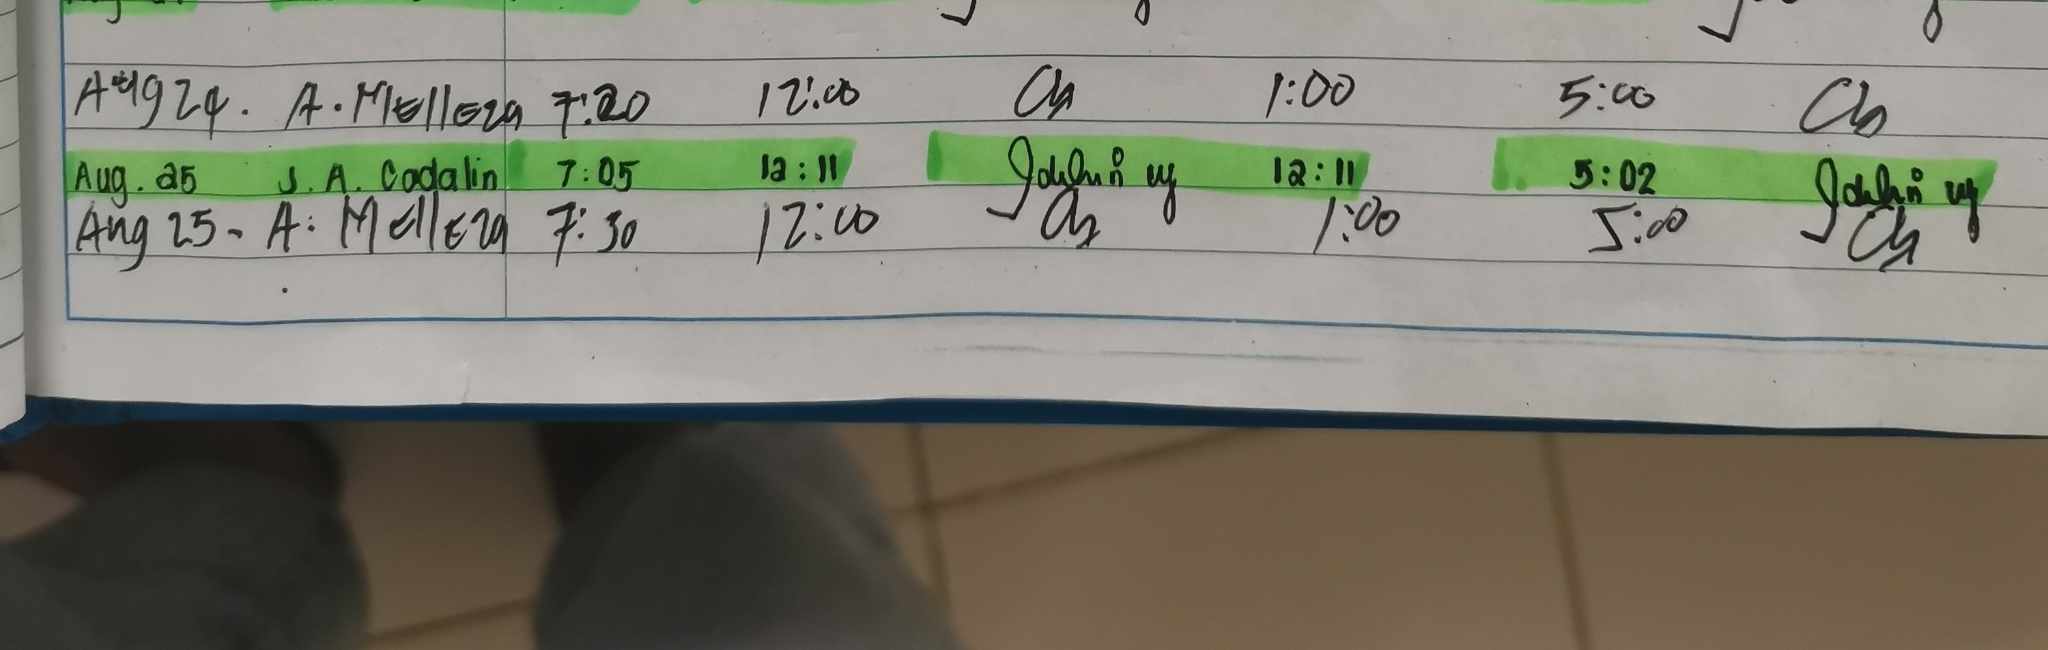 Aug 24. A. Melleza 7:20 12:00 1:00 5:00
Aug. 25 J. A. Cadalin 7:05 12:11 12:11 5:02
Aug 25- A. Melleza 7:30 12:00 1:00 5:00